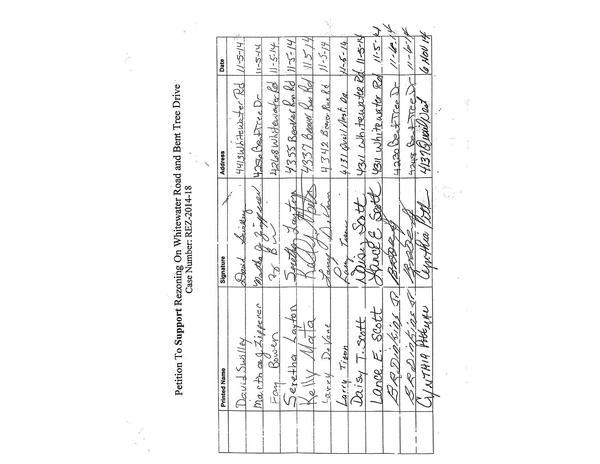 Petition To Support Rezoning On Whitewater Road and Bent Tree Drive
Case Number: REZ-2014-18
Printed Name Signature Address Date
David Swilley David Swilley 4413 Whitewater Rd 11-5-14
Martha J Zipperer Martha J Zipperer 4250 Bent Tree Dr 11-5-14
Fay Bowen 4268 Whitewater Rd 11-5-14
Seretha Layton Seretha Layton 4355 Beaver Run Rd 11-5-14
Kelly Mata Kelly Mata 4337 Beaver Run Rd 11 5 14
Larry DeVane Larry DeVane 4342 Beaver Run Rd 11-5-14
Larry Tison Larry Tison 4131 Quail Nest Dr 11-5-14
Daisy T. Scott Daisy Scott 4311 Whitewater Rd 11-5-14
Lance E. Scott Lance E. Scott 4311 Whitewater Rd 11-5-14
4230 Bent Tree Dr 11-6-14
Bent Tree Dr 11-6-14
CYNTHIA Cynthia 4137 Quail Nest 6 NOV 14